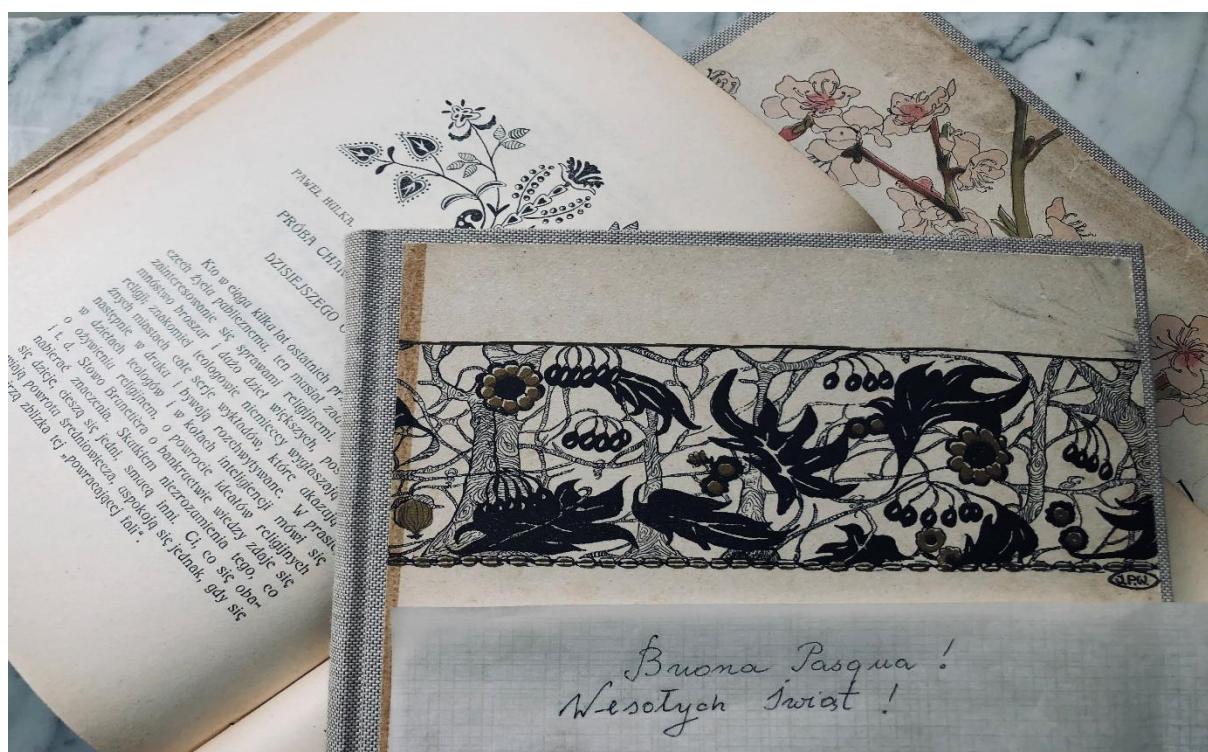 PAWEŁ HULKA
PRÓBA
DZISIEJSZEGO
Kto w ciągu kilku lat ostatnich
czech życia publicznemu, ten musiał
zainteresowanie się sprawami religijnemi.
mnóstwo broszur i dużo dzieł większych,
religji; znakomici teologowie niemieccy wygłaszają
żnych miastach całe serje wykładów, które
następnie w druku i bywają rozchwytywane. W
w dziełach teologów i w kołach inteligencji mówi się
o ożywieniu religijnem, o powrocie ideałów religijnych
i t. d. Słowo o bankructwie wiedzy zdaje się
nabierać znaczenia. Skutkiem niezrozumienia tego, co
się dzieje, cieszą się jedni, smucą inni. Ci, co się oba-
wiają powrotu średniowiecza, uspokoją się jednak, gdy się
zbliska tej „powracającej fali“.
J.P.W.
Buona Pasqua !
Wesołych Świąt !